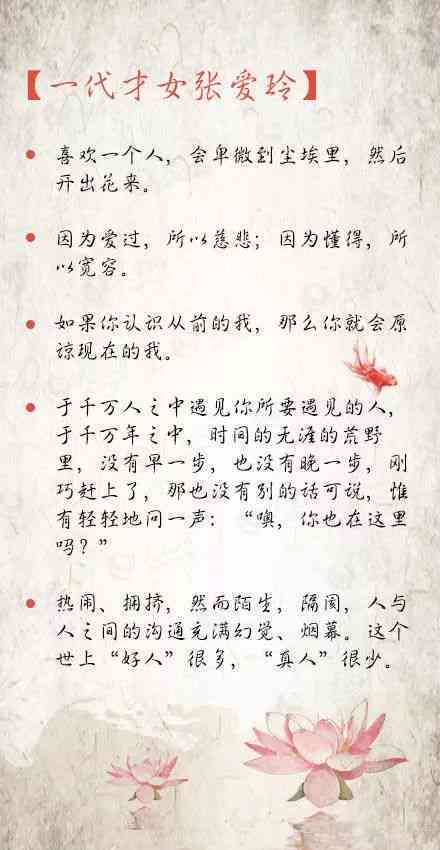 【一代才女张爱玲】
喜欢一个人，会卑微到尘埃里，然后
开出花来。
因为爱过，所以慈悲；因为懂得，所
以宽容。
如果你认识从前的我，那么你就会原
谅现在的我。
于千万人之中遇见你所要遇见的人，
于千万年之中，时间的无涯的荒野
里，没有早一步，也没有晚一步，刚
巧赶上了，那也没有别的话可说，惟
有轻轻地问一声：“噢，你也在这里
吗？”
热闹、拥挤，然而陌生，隔阂，人与
人之间的沟通充满幻觉、烟幕。这个
世上“好人”很多，“真人”很少。